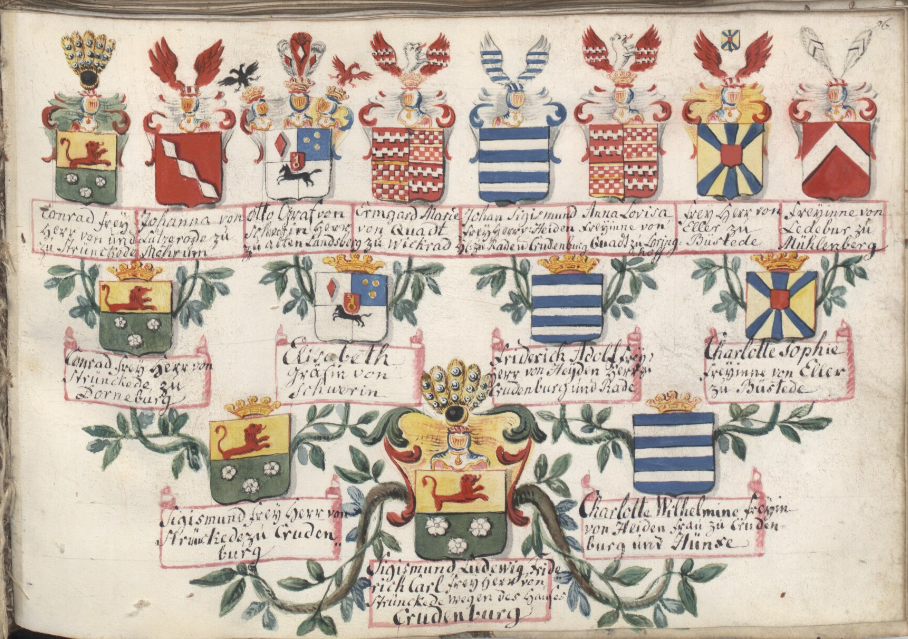 26
Conrad Frey
Herr von und
zu Strünckede
Johanna von
Lützerade zu
Mehrum
Otto Graf von
Schwerin Herr
zu Alten Landsberg
Ermgard Marie
von Quadt
zu Wickrad
Johan Sigismund
Frey Herr v: Heiden
Hr: zu Rade u Crudenburg
Anna Lovisa
Freyinne von
Quadt zu
Frey Herr von
Eller zu
Büstede
Freyinne von
Ledebur zu
Mühlenberg
Conrad Frey Herr von
Strünckede zu
Dorneburg
Elisabeth
Gräfin von
Schwerin
Friderich Adolf Frey
Herr von Heyden Herr zu
Crudenburg und Rade
Charlotte Sophie
Freyinne von Eller
zu Büstede
Sigismund Frey Herr von
Strückede zu Cruden
burg
Charlotte Wilhelmine Freyin
von Heiden Frau zu Cruden-
burg und Hünxe
Sigismund Ludewig Fride
rich Carl Frey Herr von
Strünckede wegen des Hauses
Crudenburg